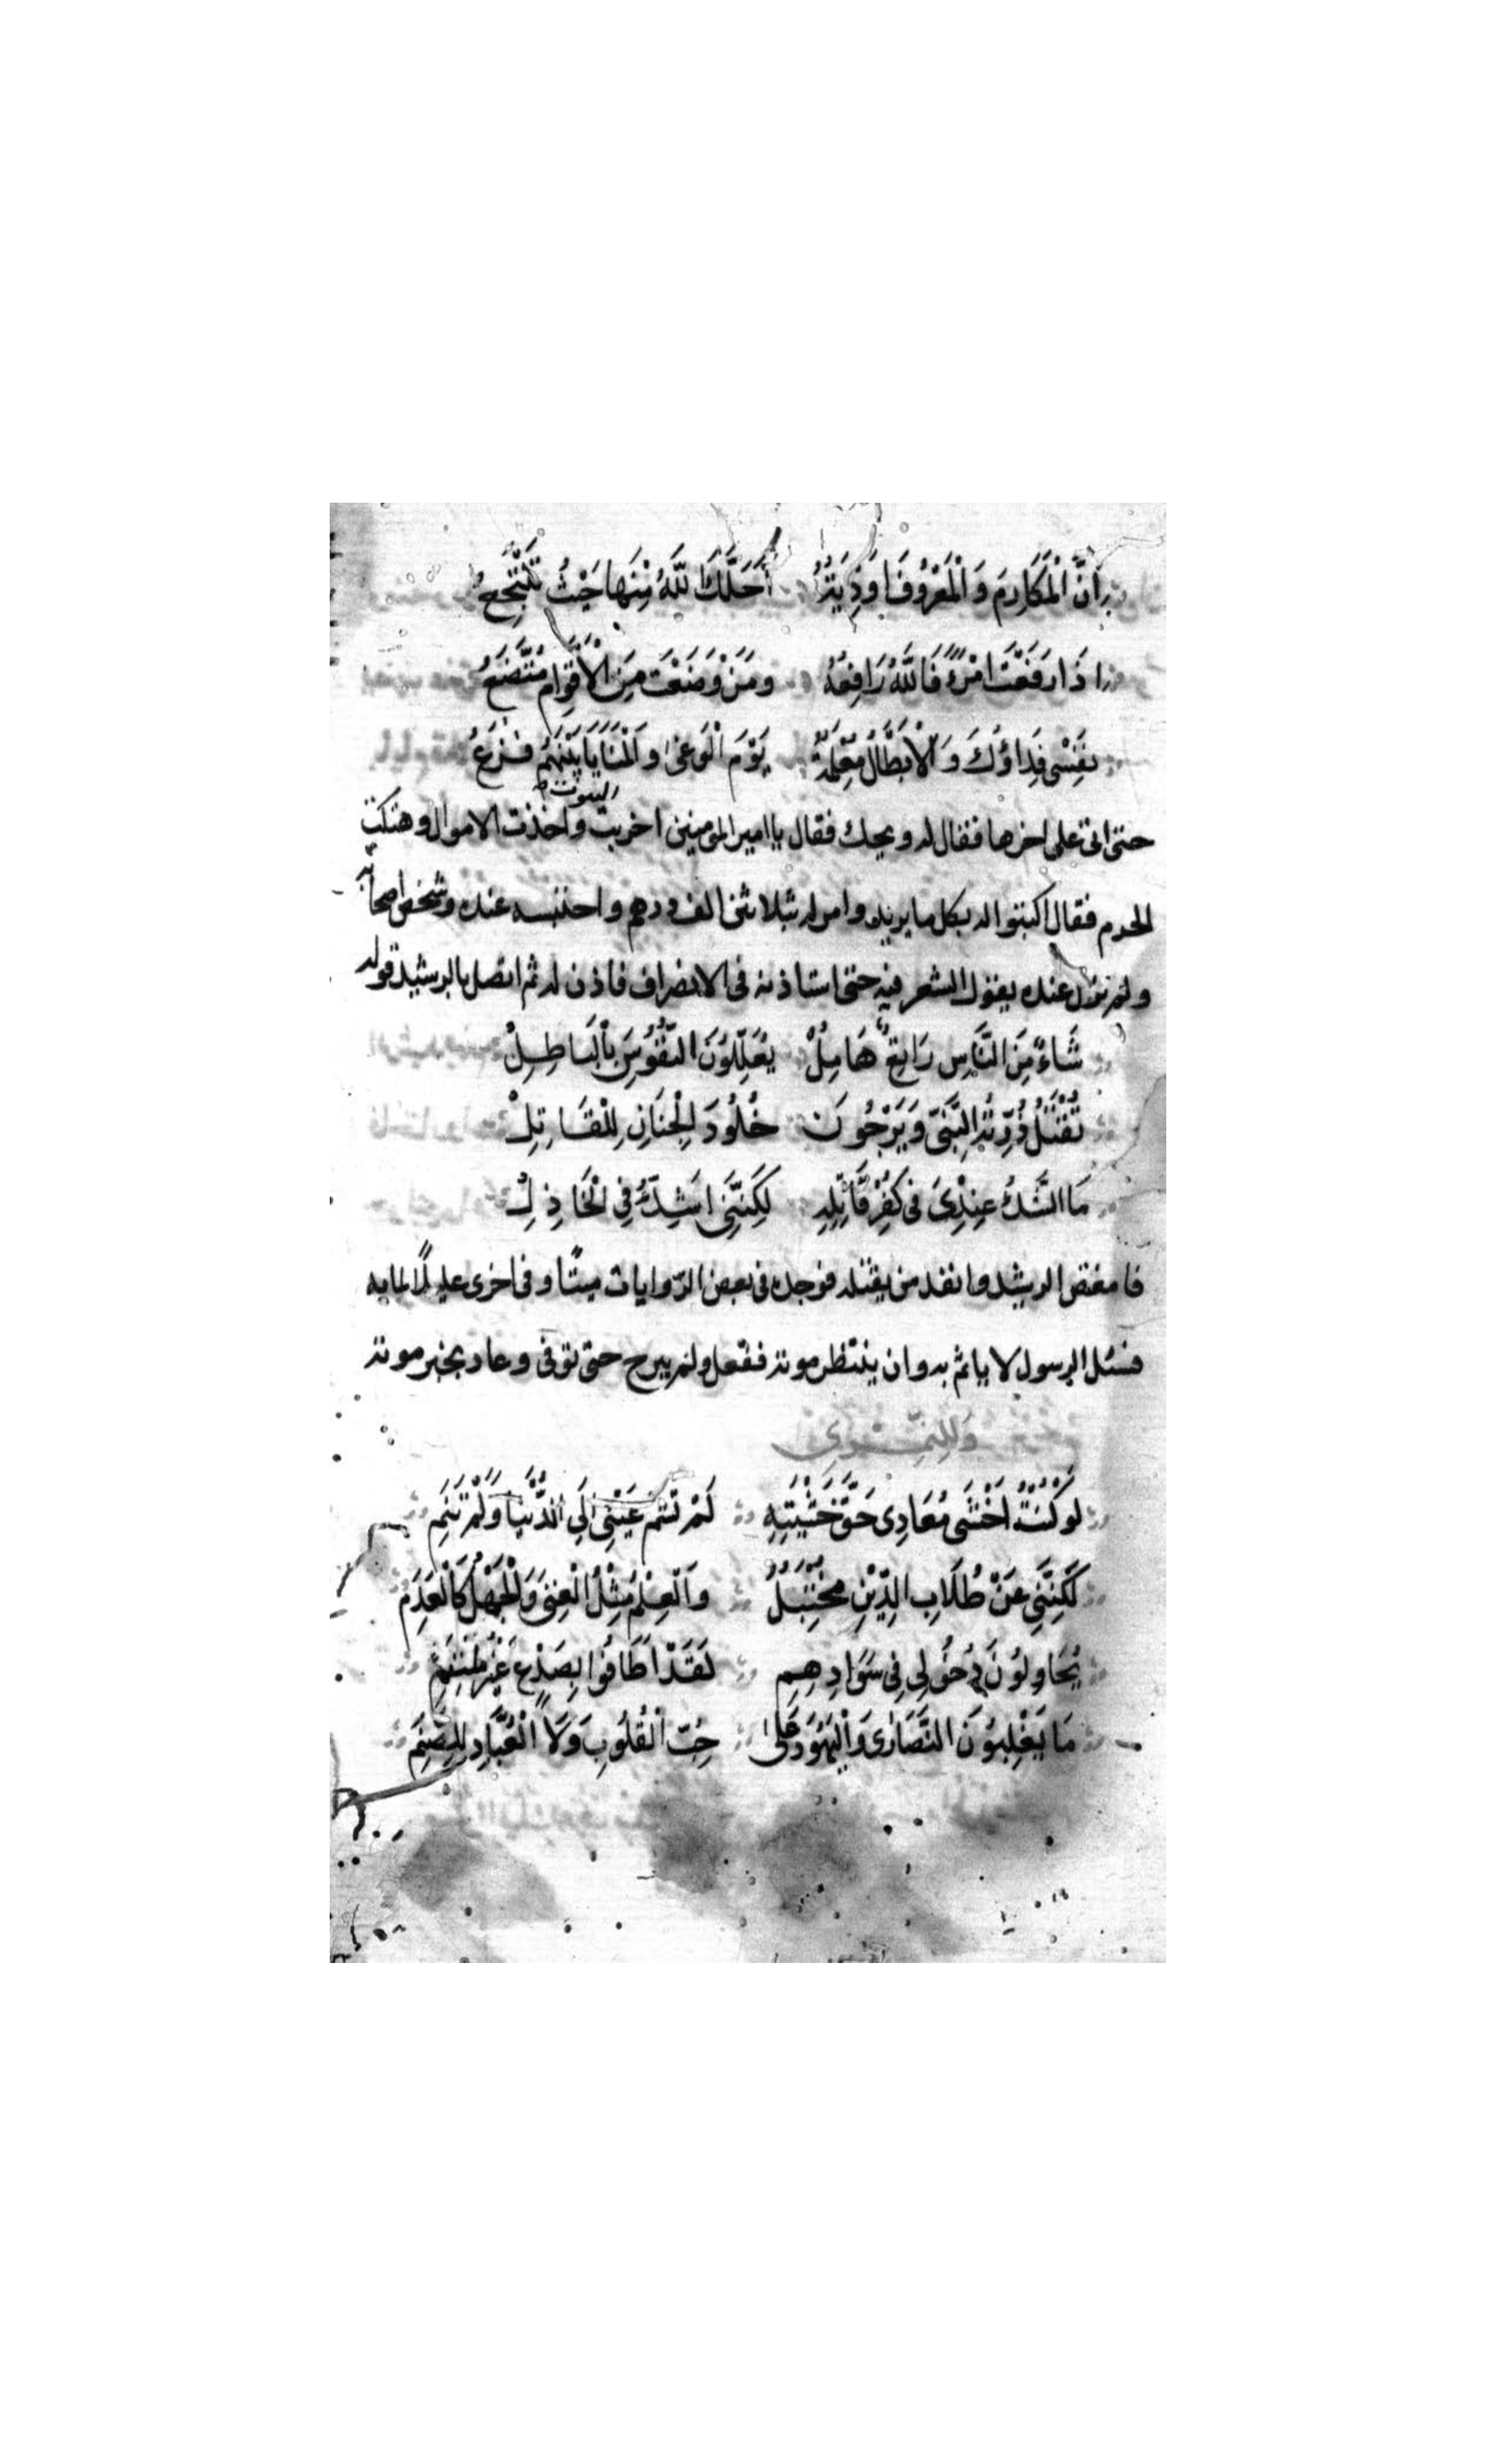 اِنَّ الْمَكَارِمَ وَالْمَعْرُوفَ اَوْدِيَةٌ اَحَلَّكَ اللّٰهُ مِنْهَا حَيْثُ تَنْتَجِعُ
اِذَا رَفَعْتَ امْرَءً فَاللّٰهُ رَافِعُهُ وَمَنْ وَضَعْتَ مِنَ الْاَقْوَامِ مُتَّضِعُ
نَفْسِي فِدَاؤُكَ وَالْاَبْطَالُ مُعْلَمَةٌ يَوْمَ الْوَغٰى وَالْمَنَايَا بَيْنَهُمْ فَزَعُ
حتى اتى على اخرها فقال له ويحك فقال يا امير المومنين اخربت البيوت واخذت الاموال وهتكت
الحرم فقال اكتبوا له بكل ما يريد وامر له بثلاثين الف درهم واحتبسه عنده وشخص اصحابه
ولم يزل عنده يقول الشعر فيه حتى استاذنه فى الانصراف فاذن له ثم اتصل بالرشيد قوله
شَاءٌ مِنَ النَّاسِ رَاتِعٌ هَامِلْ يُعَلِّلُونَ النُّفُوسَ بِالْبَاطِلِ
تُقْتَلُ ذُرِّيَّةُ النَّبِيِّ وَيَرْجُونَ خُلُودَ الْجِنَانِ لِلْقَاتِلِ
مَا الشَّكُّ عِنْدِيَ فِي كُفْرِ قَاتِلِهِ لٰكِنَّنِي اَشُكُّ فِي الْخَاذِلِ
فامتعض الرشيد وانفد من يقتله فوجده فى بعض الروايات ميتًا وفى اخرى عليلًا لما به
فسئل الرسول لا ياثم به وان ينتظر موته ففعل ولم يبرح حتى توفى وعاد بخبر موته
وَلِلنَّمَرِي
لَوْ كُنْتُ اَخْشَى مَعَادِي حَقَّ خَشْيَتِهِ لَمْ تَسْمُ عَيْنِي اِلَى الدُّنْيَا وَلَمْ تَنَمِ
لٰكِنَّنِي عَنْ طُلَابِ الدِّيْنِ مُخْتَبَلُ وَالْعِلْمُ مِثْلُ الْغِنٰى وَالْجَهْلُ كَالْعَدَمِ
يُحَاوِلُونَ دُخُولِي فِي سَوَادِهِمِ لَقَدْ اَطَافُوا بِصَدْعٍ غَيْرِ مُلْتَئِمِ
مَا يَغْلِبُونَ النَّصَارٰى وَالْيَهُودَ عَلٰى حُبِّ الْقُلُوبِ وَلَا الْعُبَّادِ لِلصَّنَمِ